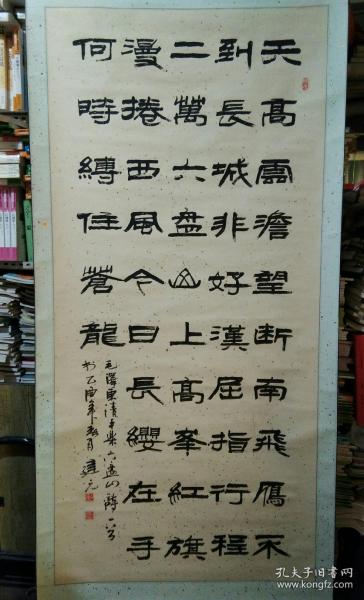 天高雲澹望断南飛雁不
到長城非好漢屈指行程
二萬六盘山上高峯紅旗
漫捲西風今日長纓在手
何時縛住蒼龍
毛澤東清平樂六盘山詩一首
孔夫子旧书网